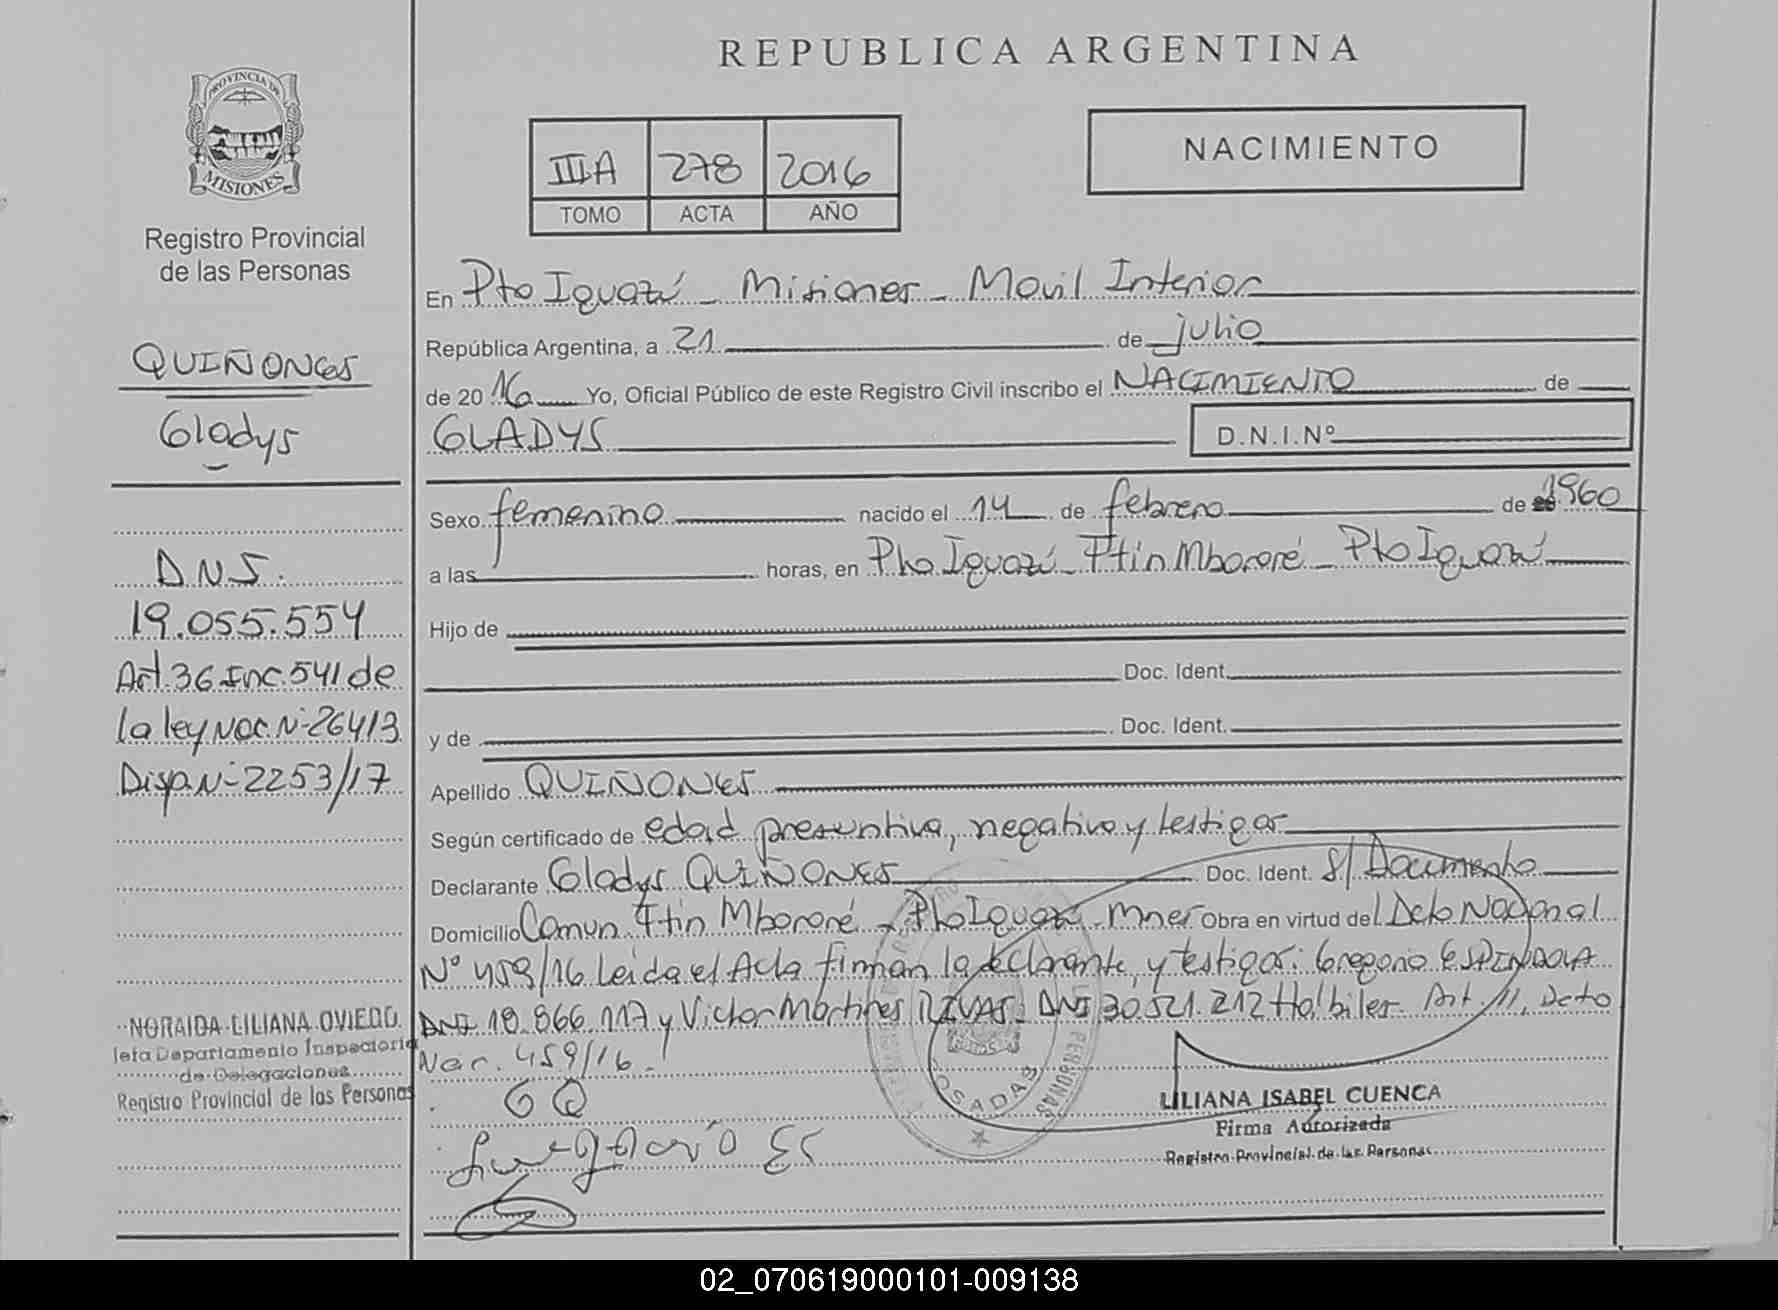 REPUBLICA ARGENTINA
PROVINCIA DE
MISIONES
Registro Provincial
de las Personas
QUIÑONES
Gladys
D.N.I.
19.055.554
Art.36 Inc.541 de
la ley Nac. N-26413
Disp.N-2253/17
NORAIDA LILIANA OVIEDO
Jefa Departamento Inspectoria
de Delegaciones
Registro Provincial de las Personas
IIIA 278 2016
TOMO ACTA AÑO
NACIMIENTO
En Pto Iguazú - Misiones - Movil Interior
República Argentina, a 21 de julio
de 2016 Yo, Oficial Público de este Registro Civil inscribo el NACIMIENTO de
GLADYS D.N.I.Nº
Sexo femenino nacido el 14 de febrero de 1960
a las horas, en Pto Iguazú - Ftin Mbororé - Pto Iguazú
Hijo de
Doc. Ident.
y de Doc. Ident.
Apellido QUIÑONES
Según certificado de edad presuntiva, negativo y testigos
Declarante Gladys QUIÑONES Doc. Ident. S/ Documento
Domicilio Comun. Ftin Mbororé - Pto Iguazú - Mnes Obra en virtud del Dcto Nacional
Nº 459/16 Leida el Acta firman la declarante, y testigos: Gregorio ESPINDOLA
DNI 18.866.117 y Victor Martires RIVAS - DNI 30.521.212 Habiles. Art. 11, Dcto
Nac. 459/16.
G Q
POSADAS
LILIANA ISABEL CUENCA
Firma Autorizada
Registro Provincial de las Personas
02_070619000101-009138